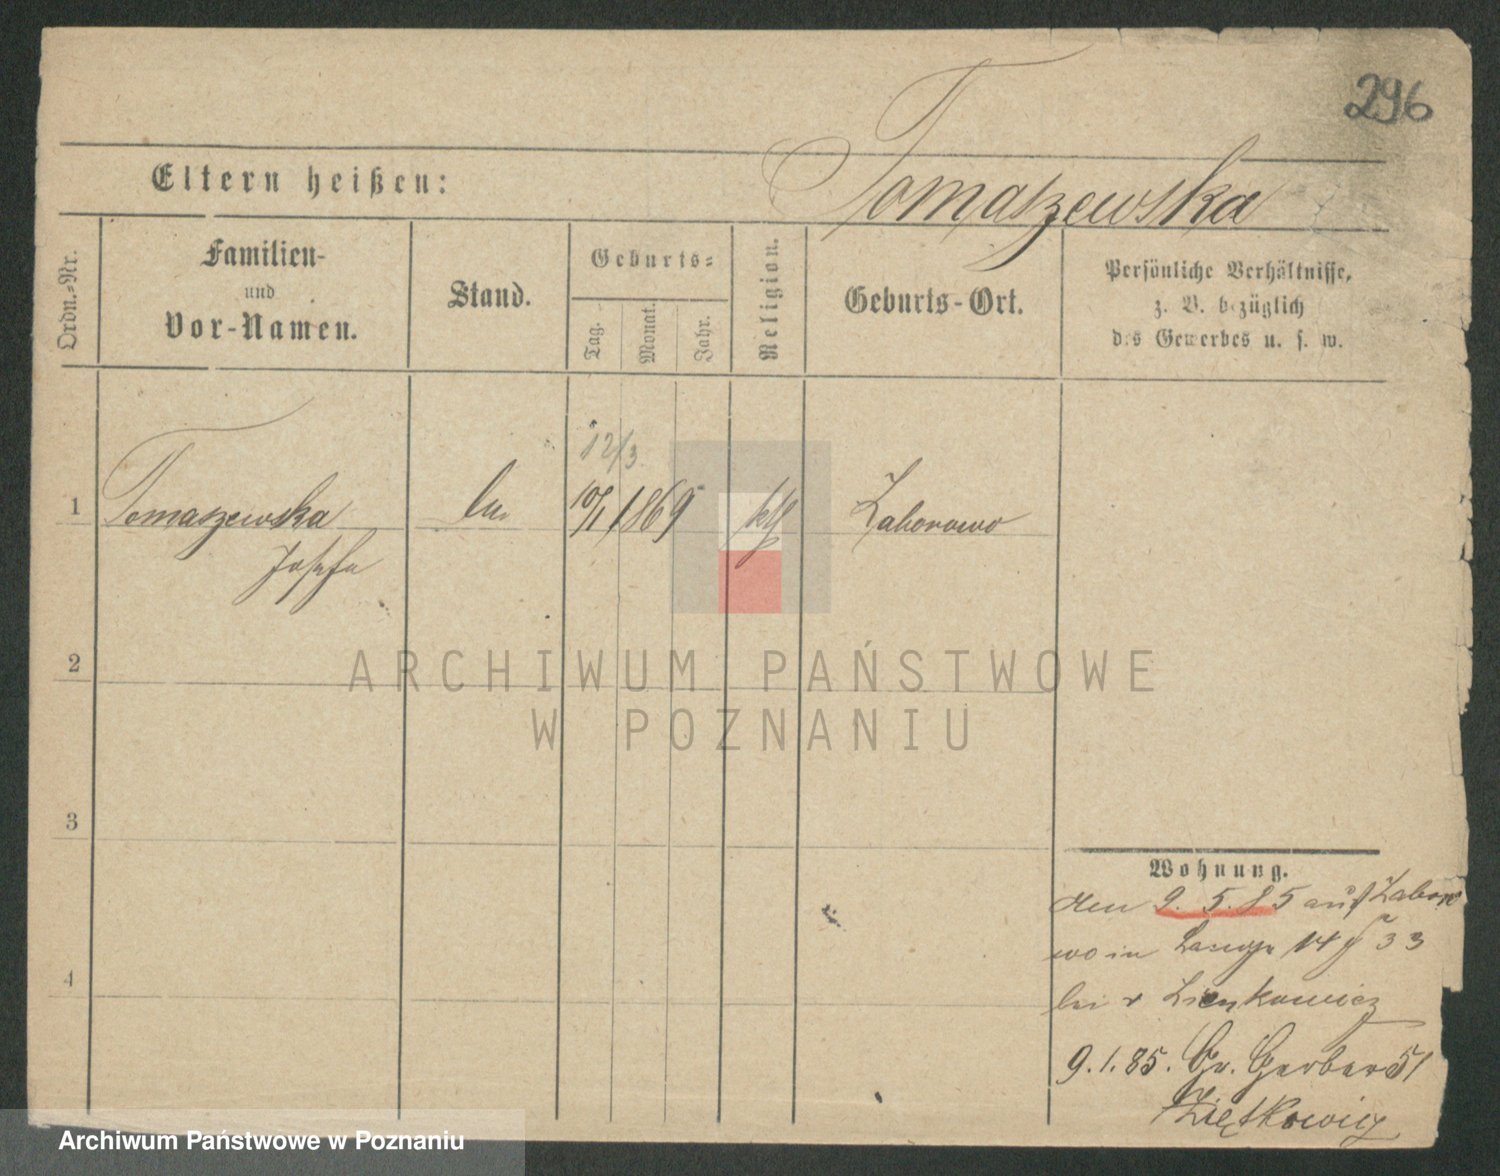 296
Tomaszewska
Eltern heißen:
Ordn.-Nr.
Familien-
und
Vor-Namen.
Stand.
Geburts-
Tag.
Monat.
Jahr.
Religion.
Geburts-Ort.
Persönliche Verhältnisse,
z. B. bezüglich
des Gewerbes u. s. w.
12/3
1 Tomaszewska 10/1 1869 kth Zaborowo
Josefa
2
3
4
Wohnung.
den 9. 5. 85 auf Zaboro
wo in 14 33
bei
9.1.85. Gr. Gerber 51
Ziętkowicz
ARCHIWUM PAŃSTWOWE
W POZNANIU
Archiwum Państwowe w Poznaniu